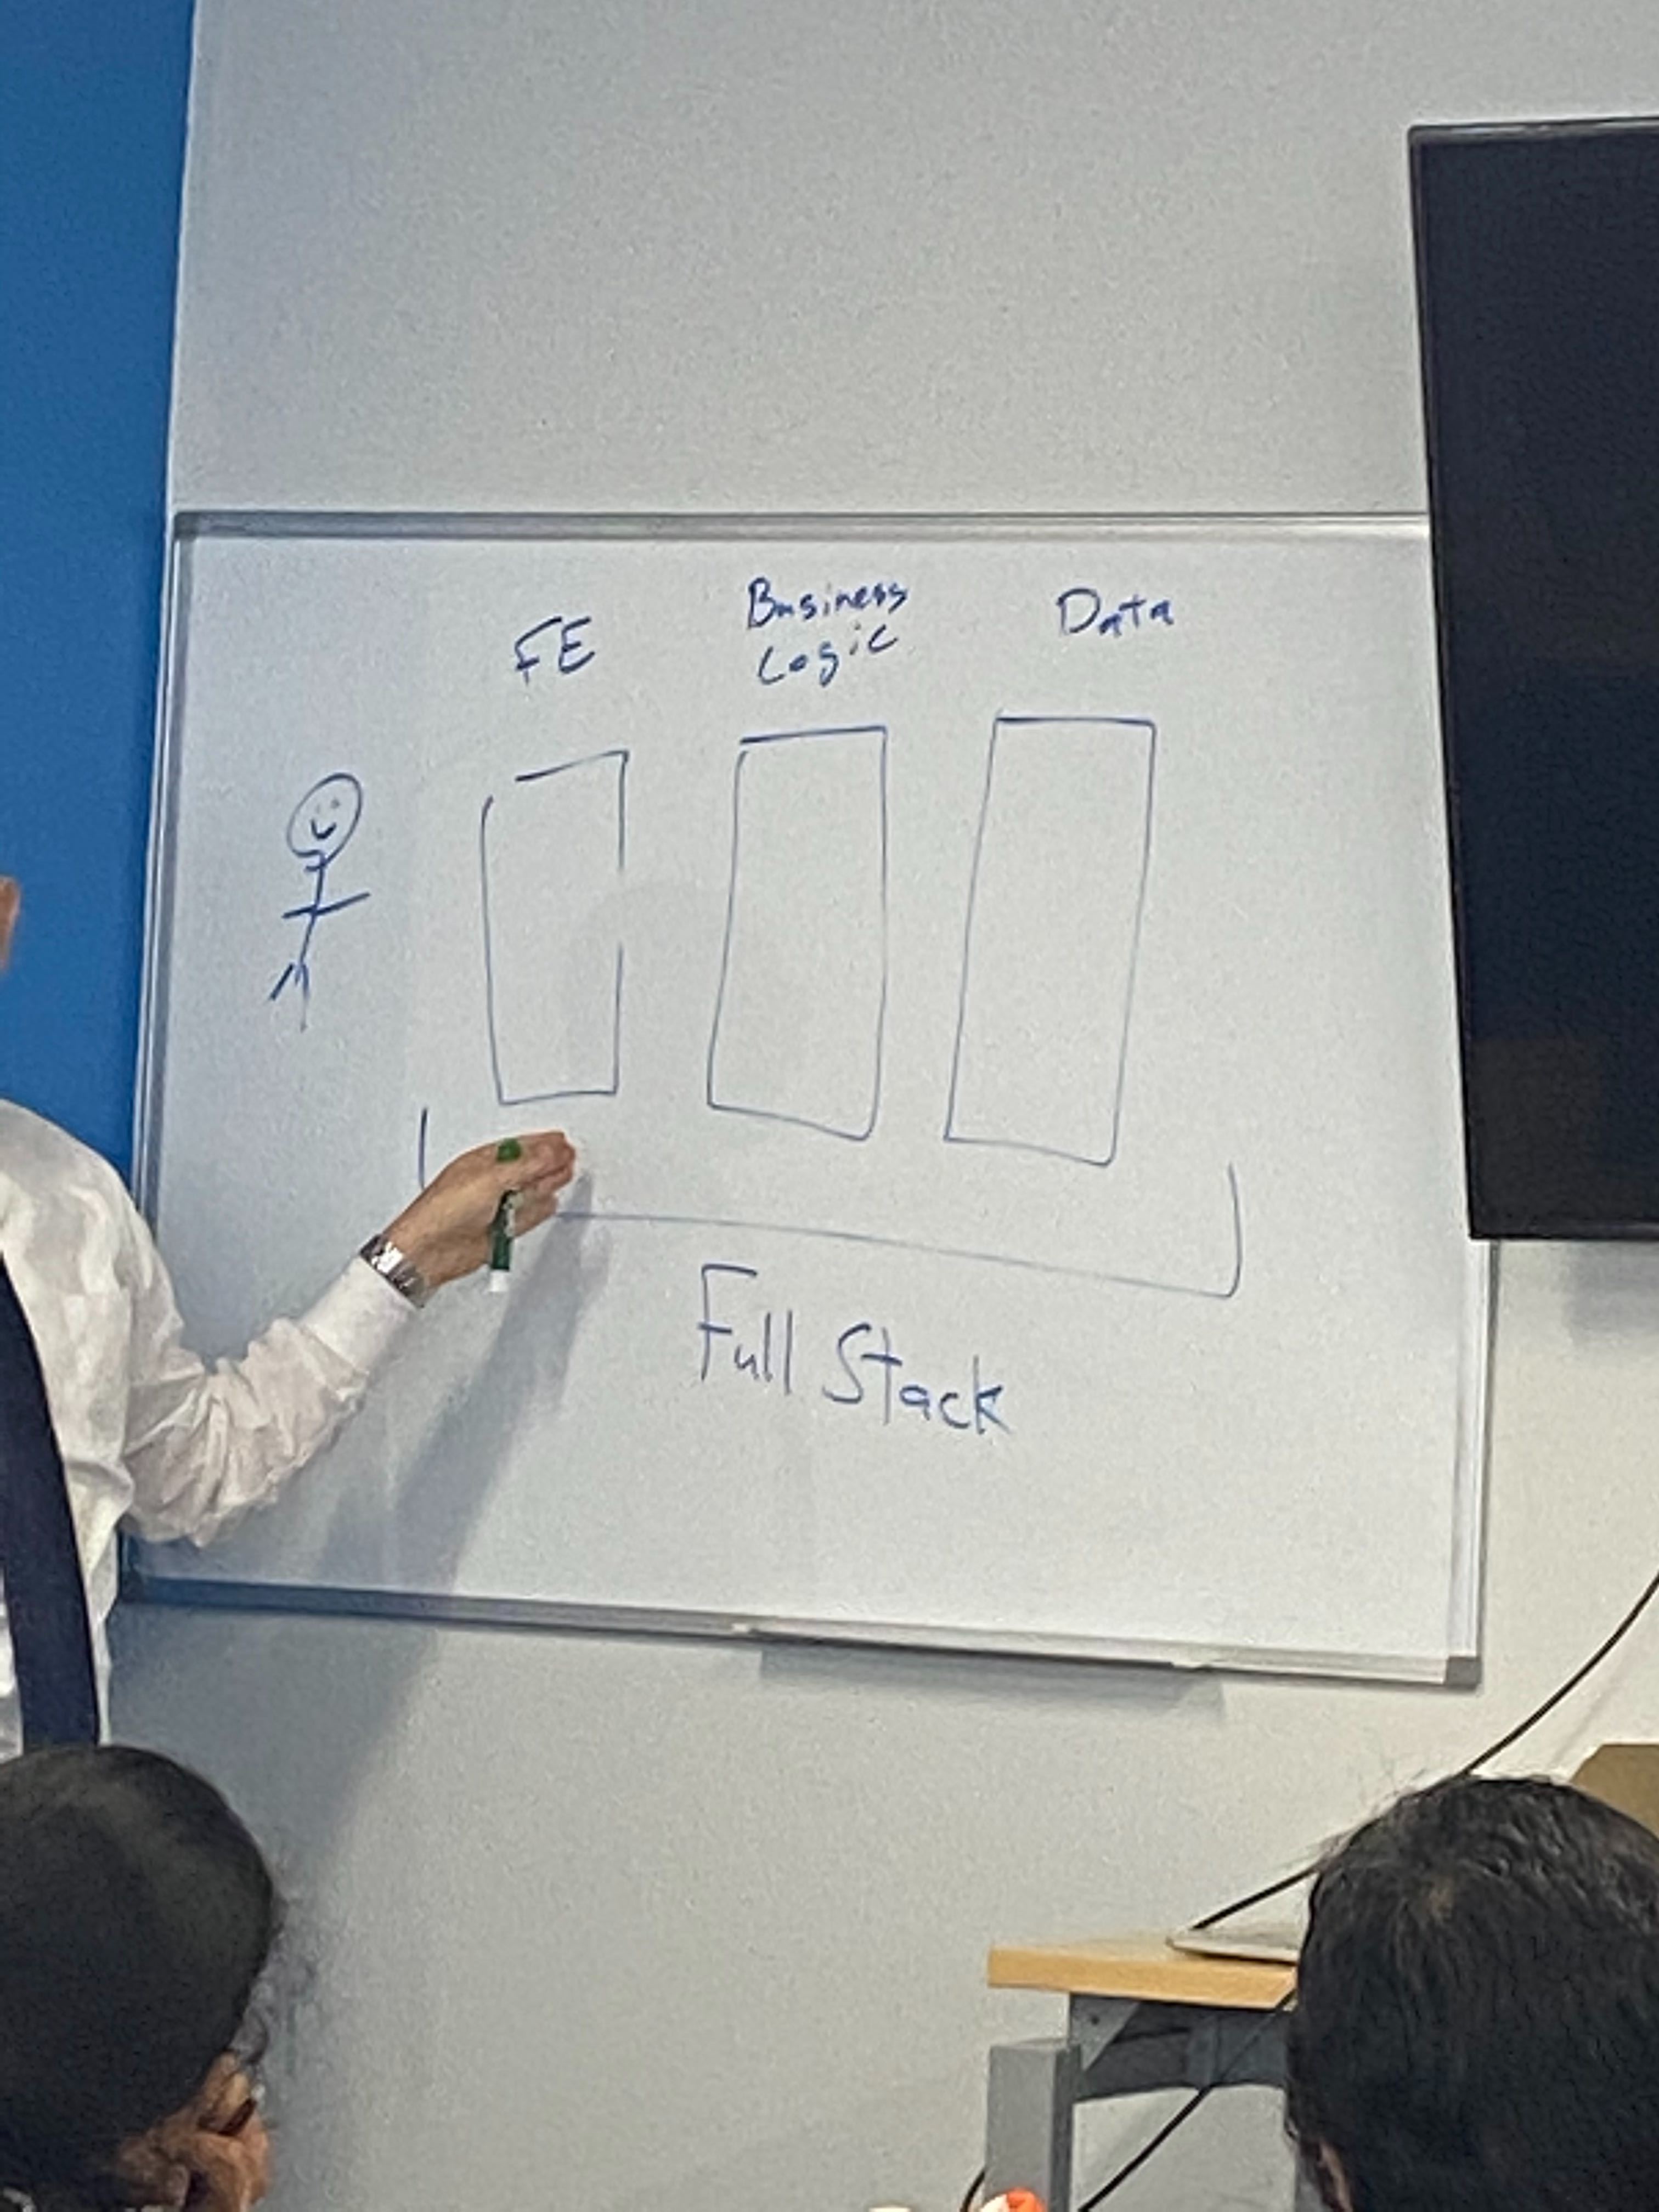 FE
Business
Logic
Data
Full Stack